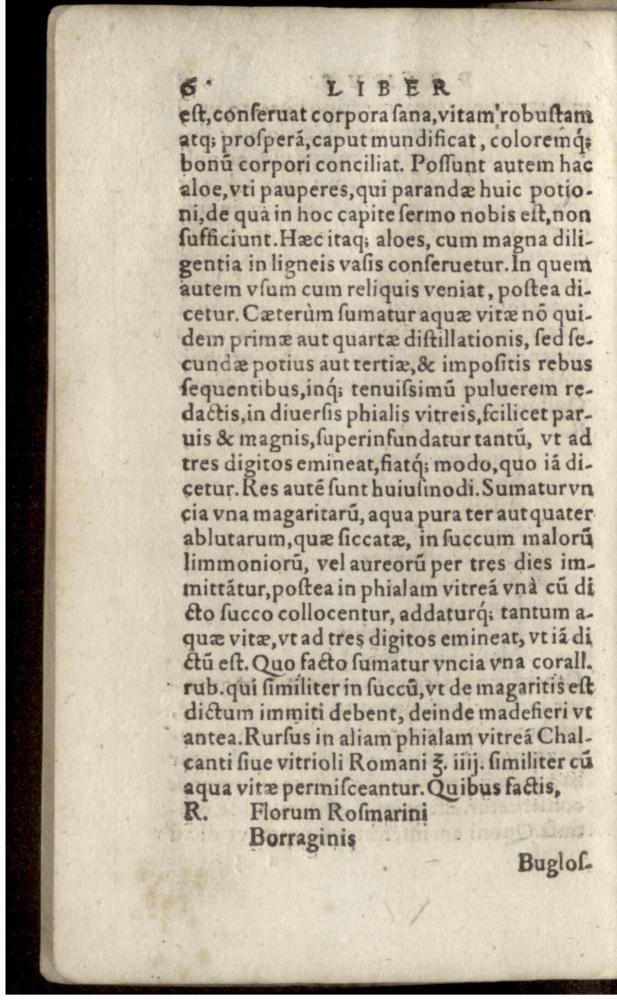 6 LIBER
eſt,conſeruat corpora ſana,vitam robuſtam
atq; proſperã,caput mundificat, coloremq́;
bonũ corpori conciliat. Poſſunt autem hac
aloe,vti pauperes,qui parandæ huic potio-
ni,de qua in hoc capite ſermo nobis eſt,non
ſufficiunt.Hæc itaq; aloes, cum magna dili-
gentia in ligneis vaſis conſeruetur.In quem
autem vſum cum reliquis veniat, poſtea di-
cetur. Cæterùm ſumatur aquæ vitæ nõ qui-
dem primæ aut quartæ diſtillationis, ſed ſe-
cundæ potius aut tertiæ,& impoſitis rebus
ſequentibus,inq́; tenuiſsimũ puluerem re-
dactis,in diuerſis phialis vitreis,ſcilicet par-
uis & magnis,ſuperinfundatur tantũ, vt ad
tres digitos emineat,fiatq́; modo,quo iã di-
cetur. Res autẽ ſunt huiuſmodi.Sumatur vn
cia vna magaritarũ, aqua pura ter aut quater
ablutarum,quæ ſiccatæ, in ſuccum malorũ
limmoniorũ, vel aureorũ per tres dies im-
mittãtur,poſtea in phialam vitreã vnà cũ di
cto ſucco collocentur, addaturq́; tantum a-
quæ vitæ,vt ad tres digitos emineat, vt iã di
ctũ eſt. Quo facto ſumatur vncia vna corall.
rub.qui ſimiliter in ſuccũ,vt de magaritis eſt
dictum immiti debent, deinde madefieri vt
antea.Rurſus in aliam phialam vitreã Chal-
canti ſiue vitrioli Romani ℥. iiij. ſimiliter cũ
aqua vitæ permiſceantur. Quibus factis,
R. Florum Roſmarini
Borraginis
Bugloſ-